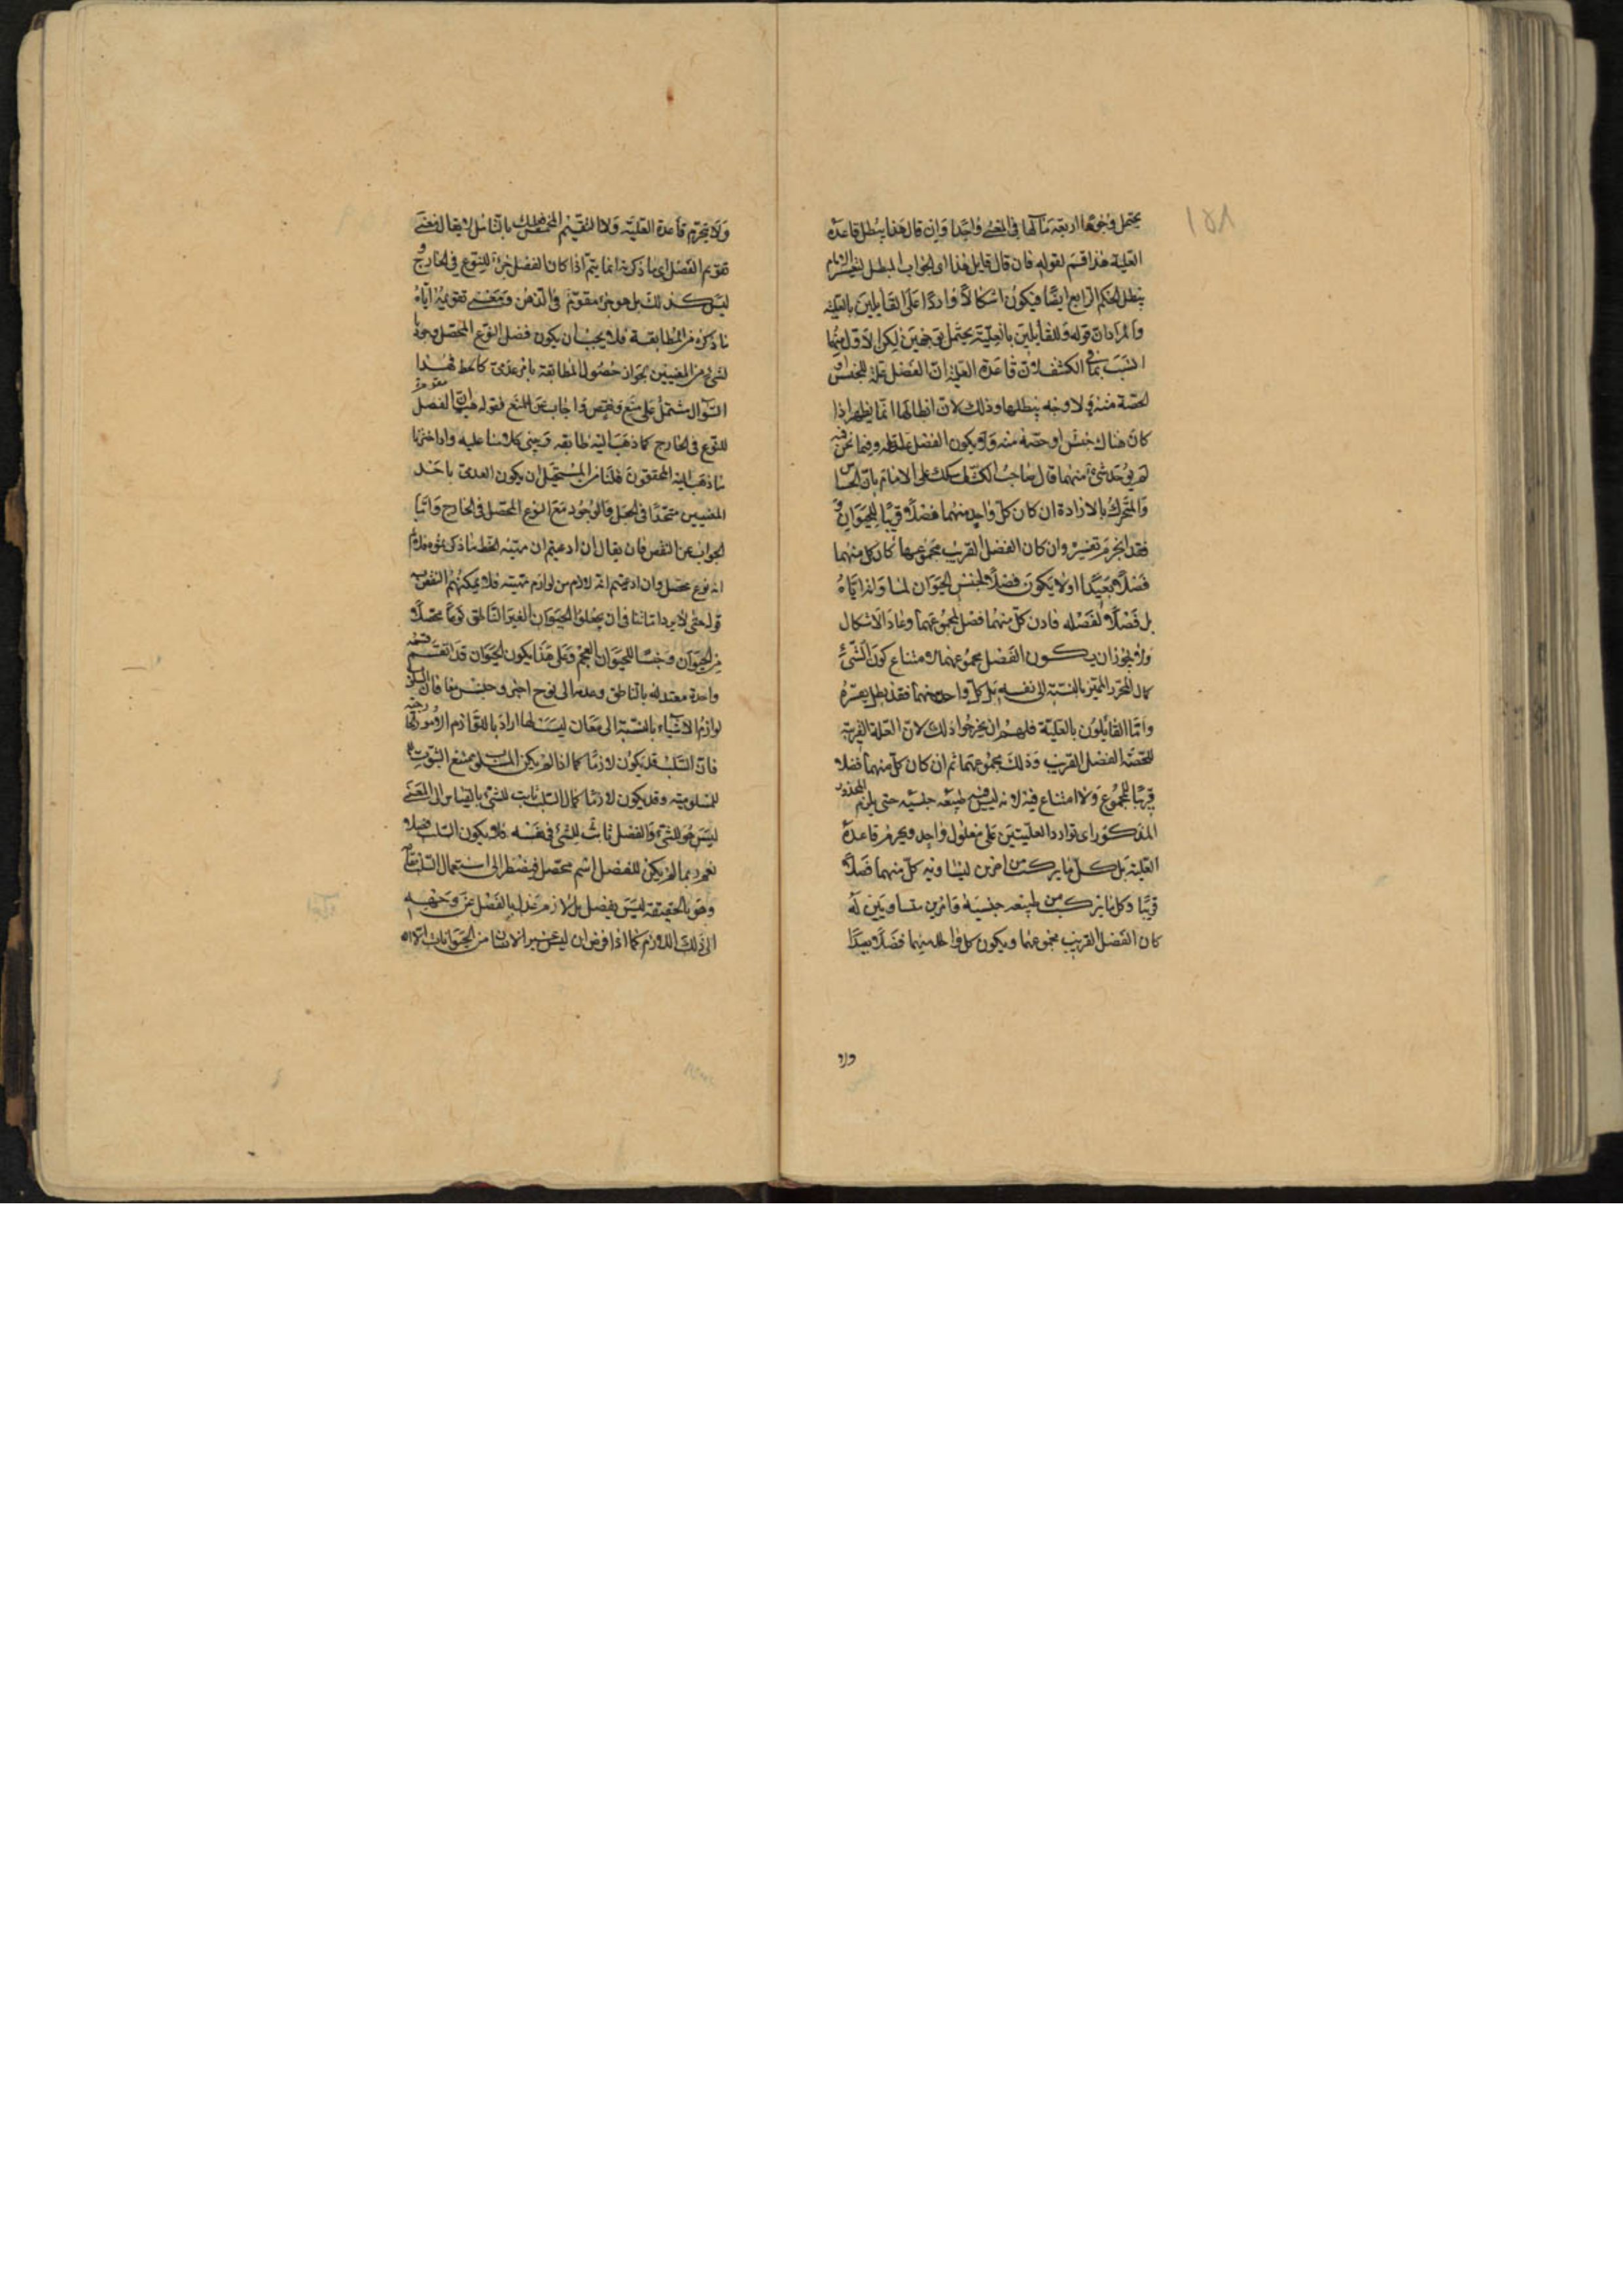 ١٥٨
يحتمل وجوها اربعة مآلها في المعنى واحد وان قال هذا يبطل قاعدة
العلية هذا قسم لقوله فان قال قايل هذا اى الجواب المبطل لتفسير الامام
يبطل الحكم الرابع ايضا فيكون اشكالا واردا على القايلين بالعلية
والمراد ان قوله وللقايلين بالعلية يحتمل توجيهين لكن الاول منهما
انسب بما في الكشف لان قاعدة العلية ان الفضل علة للجنس او
لحصة منه ولا وجه يبطلها وذلك لان ابطالها انما يظهر اذا
كان هناك جنس او حصة منه ولا يكون الفصل علة له وفيما نحن فيه
لم يوجد شئ منهما قال صاحب الكشف شكك على الامام بان الحساس
والمتحرك بالارادة ان كان كل واحد منهما فصلا قريبا للحيوان
فقد انخرم تفسيره وان كان الفصل القريب مجموعهما كان كل منهما
فصلا بعيدا اولا يكون فصلا لجنس الحيوان لمساواتها اياه
بل فصلا لفصله فاذن كل منهما فصل لمجموعهما وعاد الاشكال
ولا يجوز ان يكون الفصل مجموعهما لامتناع كون الشئ
كمال الجزء المميز بالنسبة الى نفسه بل كل واحد منهما فقد بطل تفسيره
واما القايلون بالعلية فلهم ان يخرجوا ذلك لان العلة القريبة
للحصة الفصل القريب وذلك مجموعهما ثم ان كان كل منهما فصلا
قريبا للمجموع ولا امتناع فيه لانه ليس فيه طبيعة جنسية حتى يلزم المحذور
المذكور اى توارد العلتين على معلول واحد ويخرم قاعدة
العلية بل كل ما يتركب من امرين ليساويه كل منهما فصلا
قريبا وكل ما يتركب من طبيعة جنسية وامرين متساويين له
كان الفصل القريب مجموعهما ويكون كل واحد منهما فصلا بعيدا
ولا
ولا يخرم قاعدة العلية ولا التقسيم المخمس بالتامل لا يقال معنى
تقويم الفصل اى ما ذكرتم انما يتم اذا كان الفصل جزءا للنوع في الخارج و
ليس كذلك بل هو جزء مقوم في الذهن ومعنى تقويمه اياه
ما ذكره من المطابقة فلا يجب ان يكون فصل النوع المحصل وجوديا
لشئ من المعنيين لجواز حصول المطابقة بامر عدمى كالخط فهذا
السؤال مشتمل على منع ونقض واجاب عن المنع بقوله هب ان الفصل
للنوع في الخارج كما ذهب اليه طايفة وبنى كلامنا عليه واذا اخترنا
ما ذهب اليه المحققون قلنا من المستحيل ان يكون العدمى باحد
المعنيين متحدا في الجعل والوجود مع النوع المحصل في الخارج واما
الجواب عن النقض فان يقال ان ادعيتم ان مهية الخط ما ذكر
انه نوع محصل وان ادعيتم انه لازم من لوازم مهيته فلا يمكنهم النقض به
قوله حتى لا يرد اثباتنا فان يجعلوا الحيوان الغير الناطق نوعا محصلا
من الحيوان وجنسا للحيوان العجم وعلى هذا يكون الحيوان قد انقسم قسمة
واحدة معتدلة بالناطق وعدمه الى نوع اخير وجنس ما فان السلوب
لوازم الاشياء بالنسبة الى معان ليست لها اراد باللوازم الامور
فان السلب قد يكون لازما كما اذا لم يكن المسلوب ممتنع الثبوت
للمسلوب عنه وقد يكون لازما كمال السلب ثابت للشئ بالقياس الى المعنى
ليس هو للشئ والفصل ثابت للشئ في نفسه فلا يكون السلب فصلا
نعم ربما لم يكن للفصل اسم محصل فيضطر الى استعمال السلب
وهو بالحقيقة ليس بفصل بل لازم عدل بالفصل عن وجهه
الى ذلك اللازم كما اذا فرض ان ليس غير الانسان من الحيوانات الا